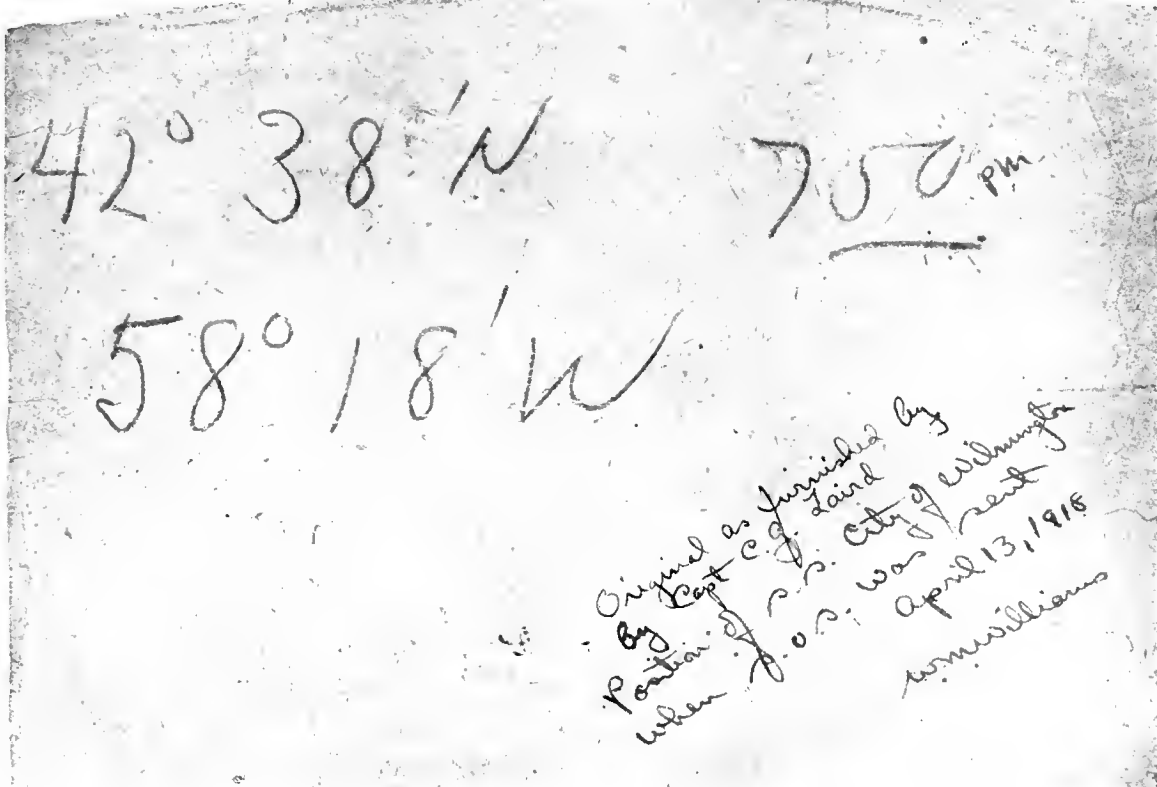 42° 38' N 750 pm
58° 18' W
Original as furnished by
By Capt C.J. Laird
Position of S.S. City of Wilmington
when S.O.S. was sent
April 13, 1918
wmwilliams